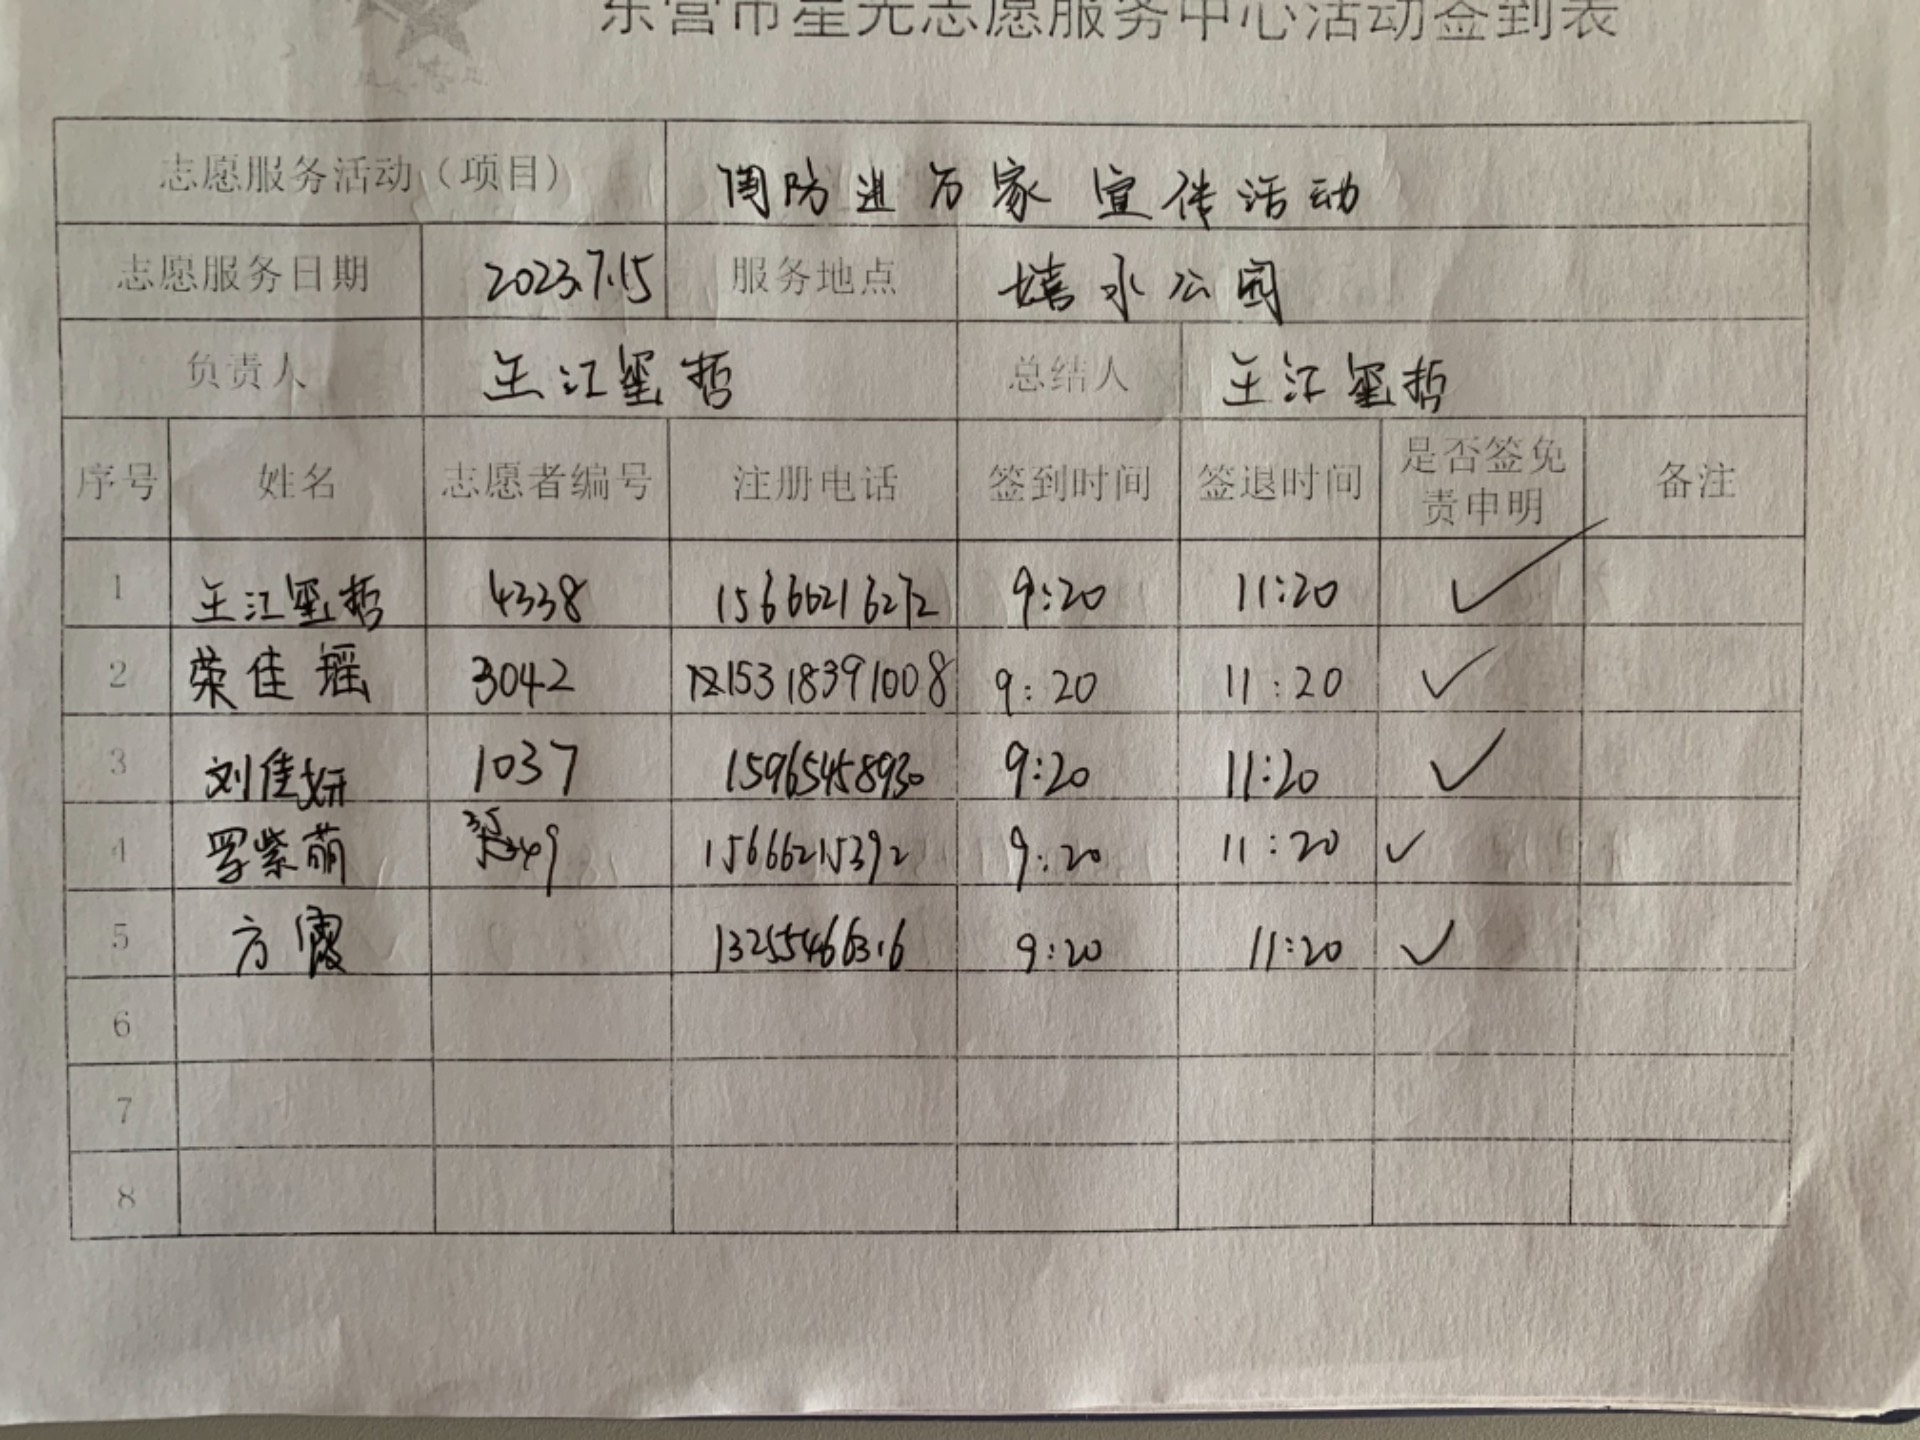 东营市星光志愿服务中心活动签到表
志愿服务活动（项目） 国防进万家 宣传活动
志愿服务日期 2023.7.15 服务地点 嬉水公园
负责人 王江玺哲 总结人 王江玺哲
序号 姓名 志愿者编号 注册电话 签到时间 签退时间 是否签免责申明 备注
1 王江玺哲 4338 15666216272 9:20 11:20 ✓
2 荣佳瑶 3042 15318391008 9:20 11:20 ✓
3 刘佳妍 1037 15965458930 9:20 11:20 ✓
4 罗紫萌 15666215392 9:20 11:20 ✓
5 方霞 13255466316 9:20 11:20 ✓
6
7
8